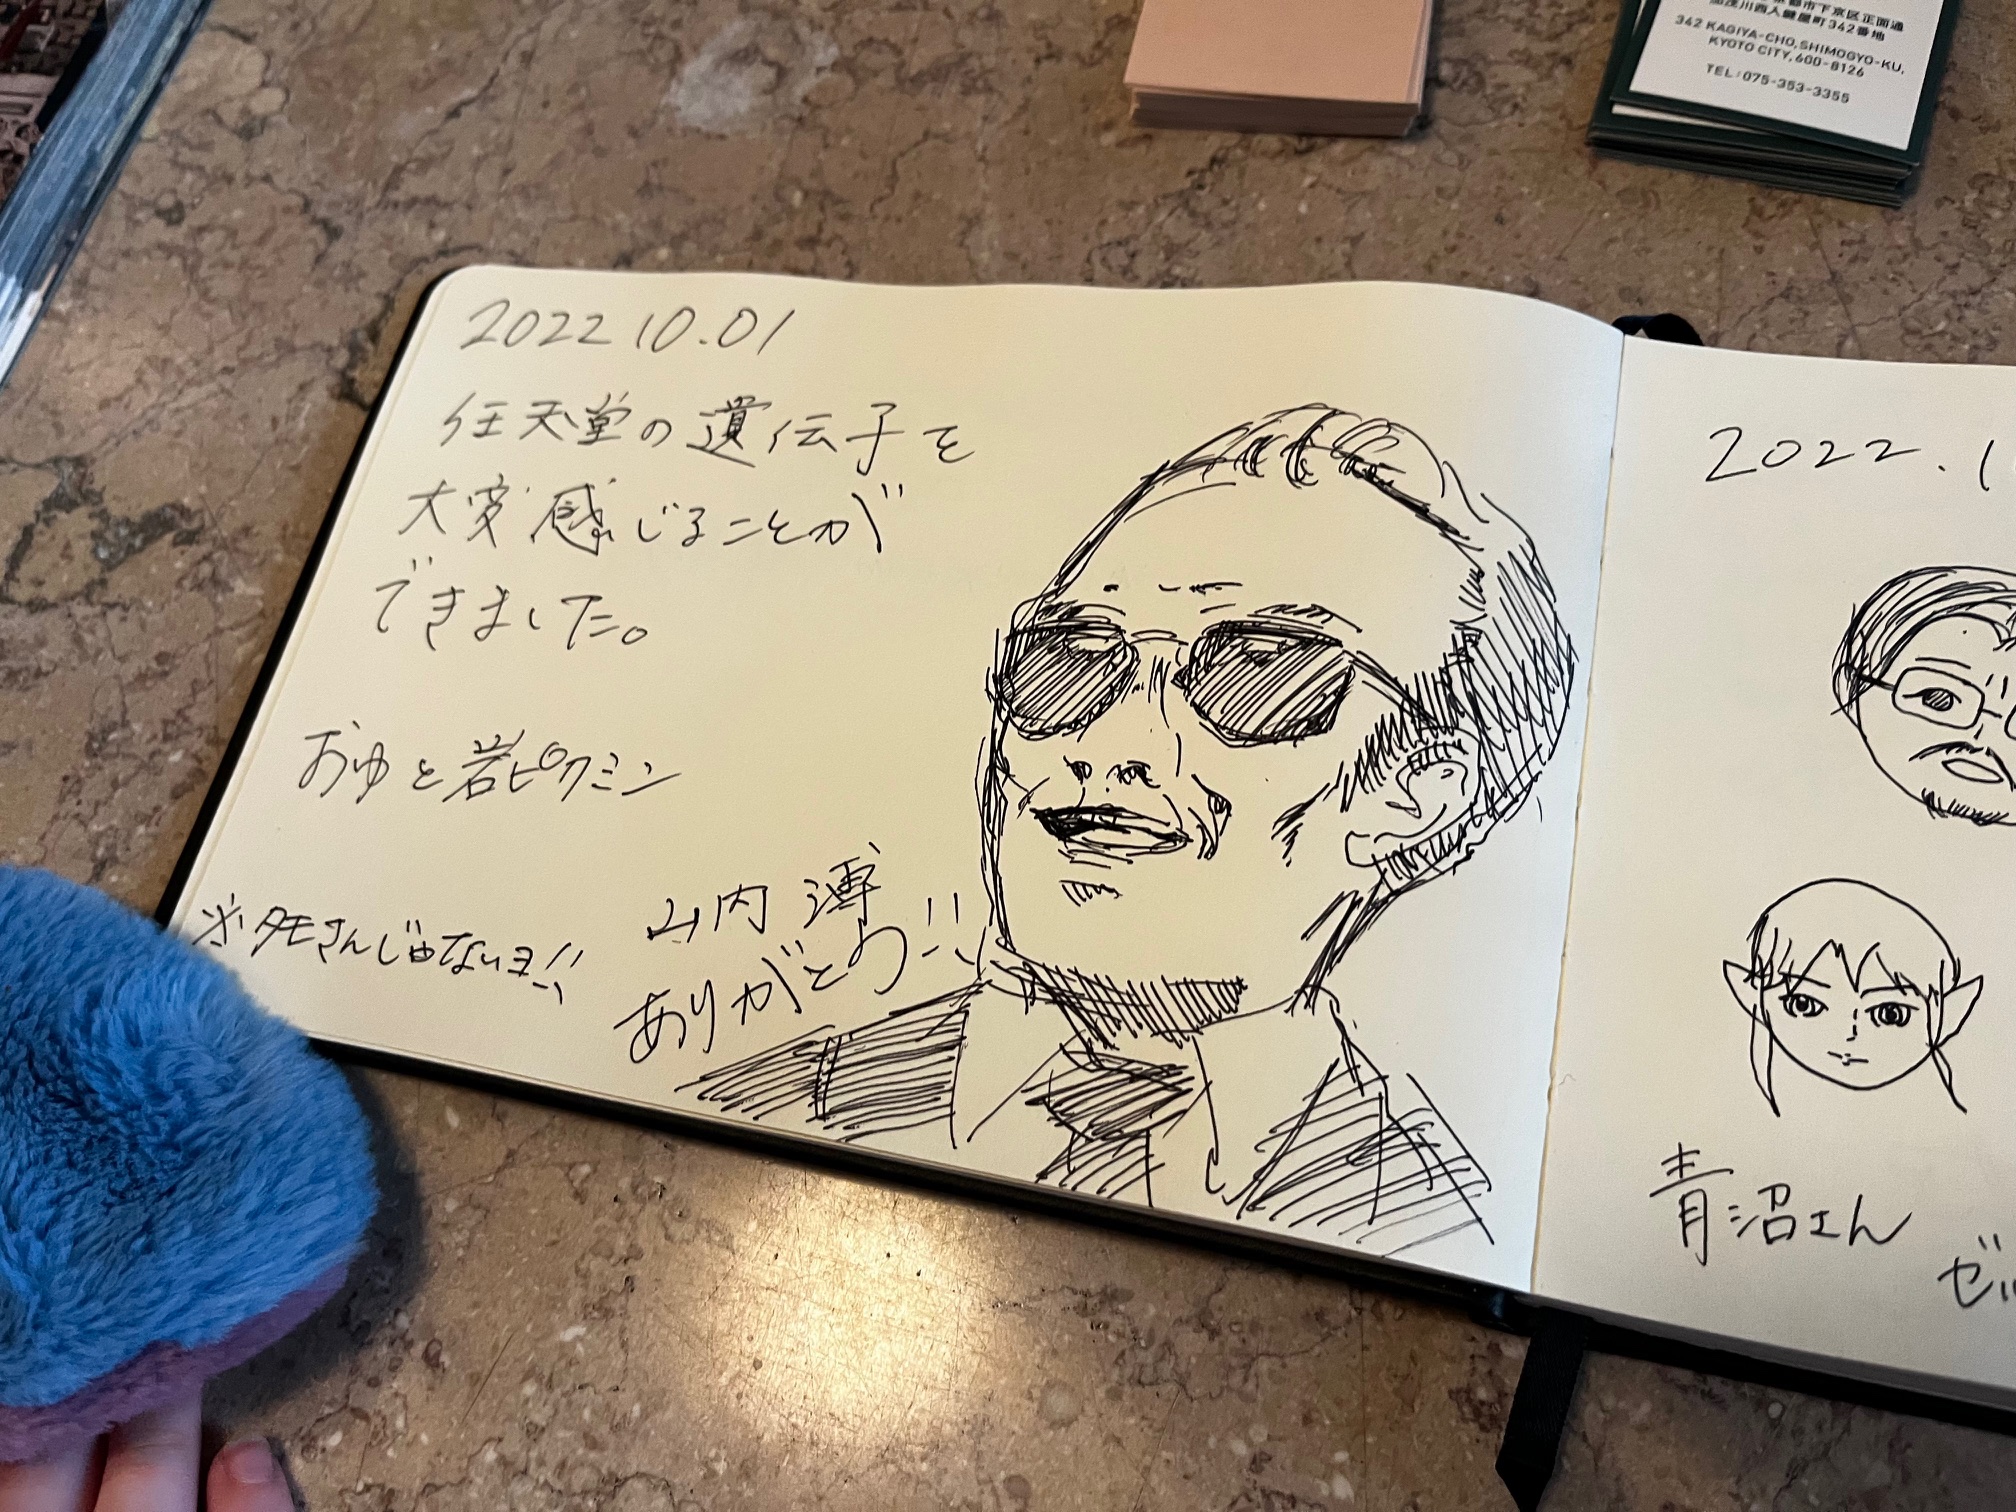 京都市下京区正面通
加茂川西入鍵屋町342番地
342 KAGIYA-CHO, SHIMOGYO-KU,
KYOTO CITY, 600-8126
TEL:075-353-3355
2022 10.01
任天堂の遺伝子を
大変感じることが
できました。
おゆと岩ピクミン
※タモさんじゃないヨ!!
山内 溥
ありがとう!!
2022.1
青沼さん
ゼル